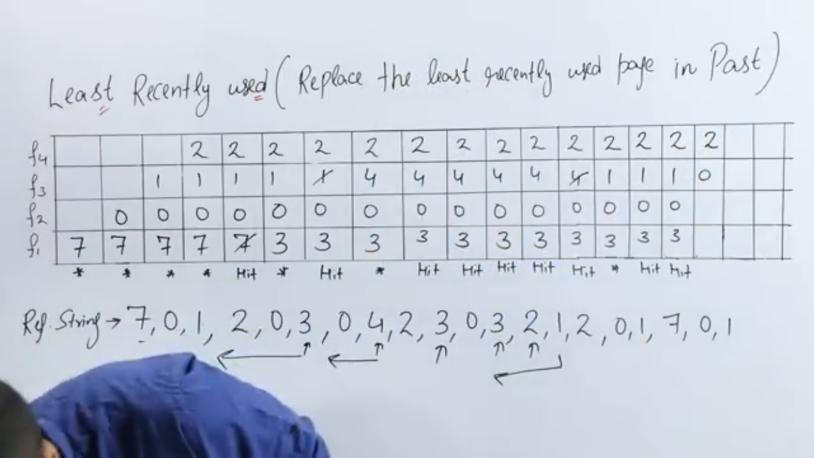 Least Recently used (Replace the least recently used page in Past)
f4 2 2 2 2 2 2 2 2 2 2 2 2 2 2
f3 1 1 1 1 1 4 4 4 4 4 4 1 1 1 0
f2 0 0 0 0 0 0 0 0 0 0 0 0 0 0 0
f1 7 7 7 7 7 3 3 3 3 3 3 3 3 3 3 3
* * * * Hit * Hit * Hit Hit Hit Hit Hit * Hit Hit
Ref. String → 7, 0, 1, 2, 0, 3, 0, 4, 2, 3, 0, 3, 2, 1, 2, 0, 1, 7, 0, 1